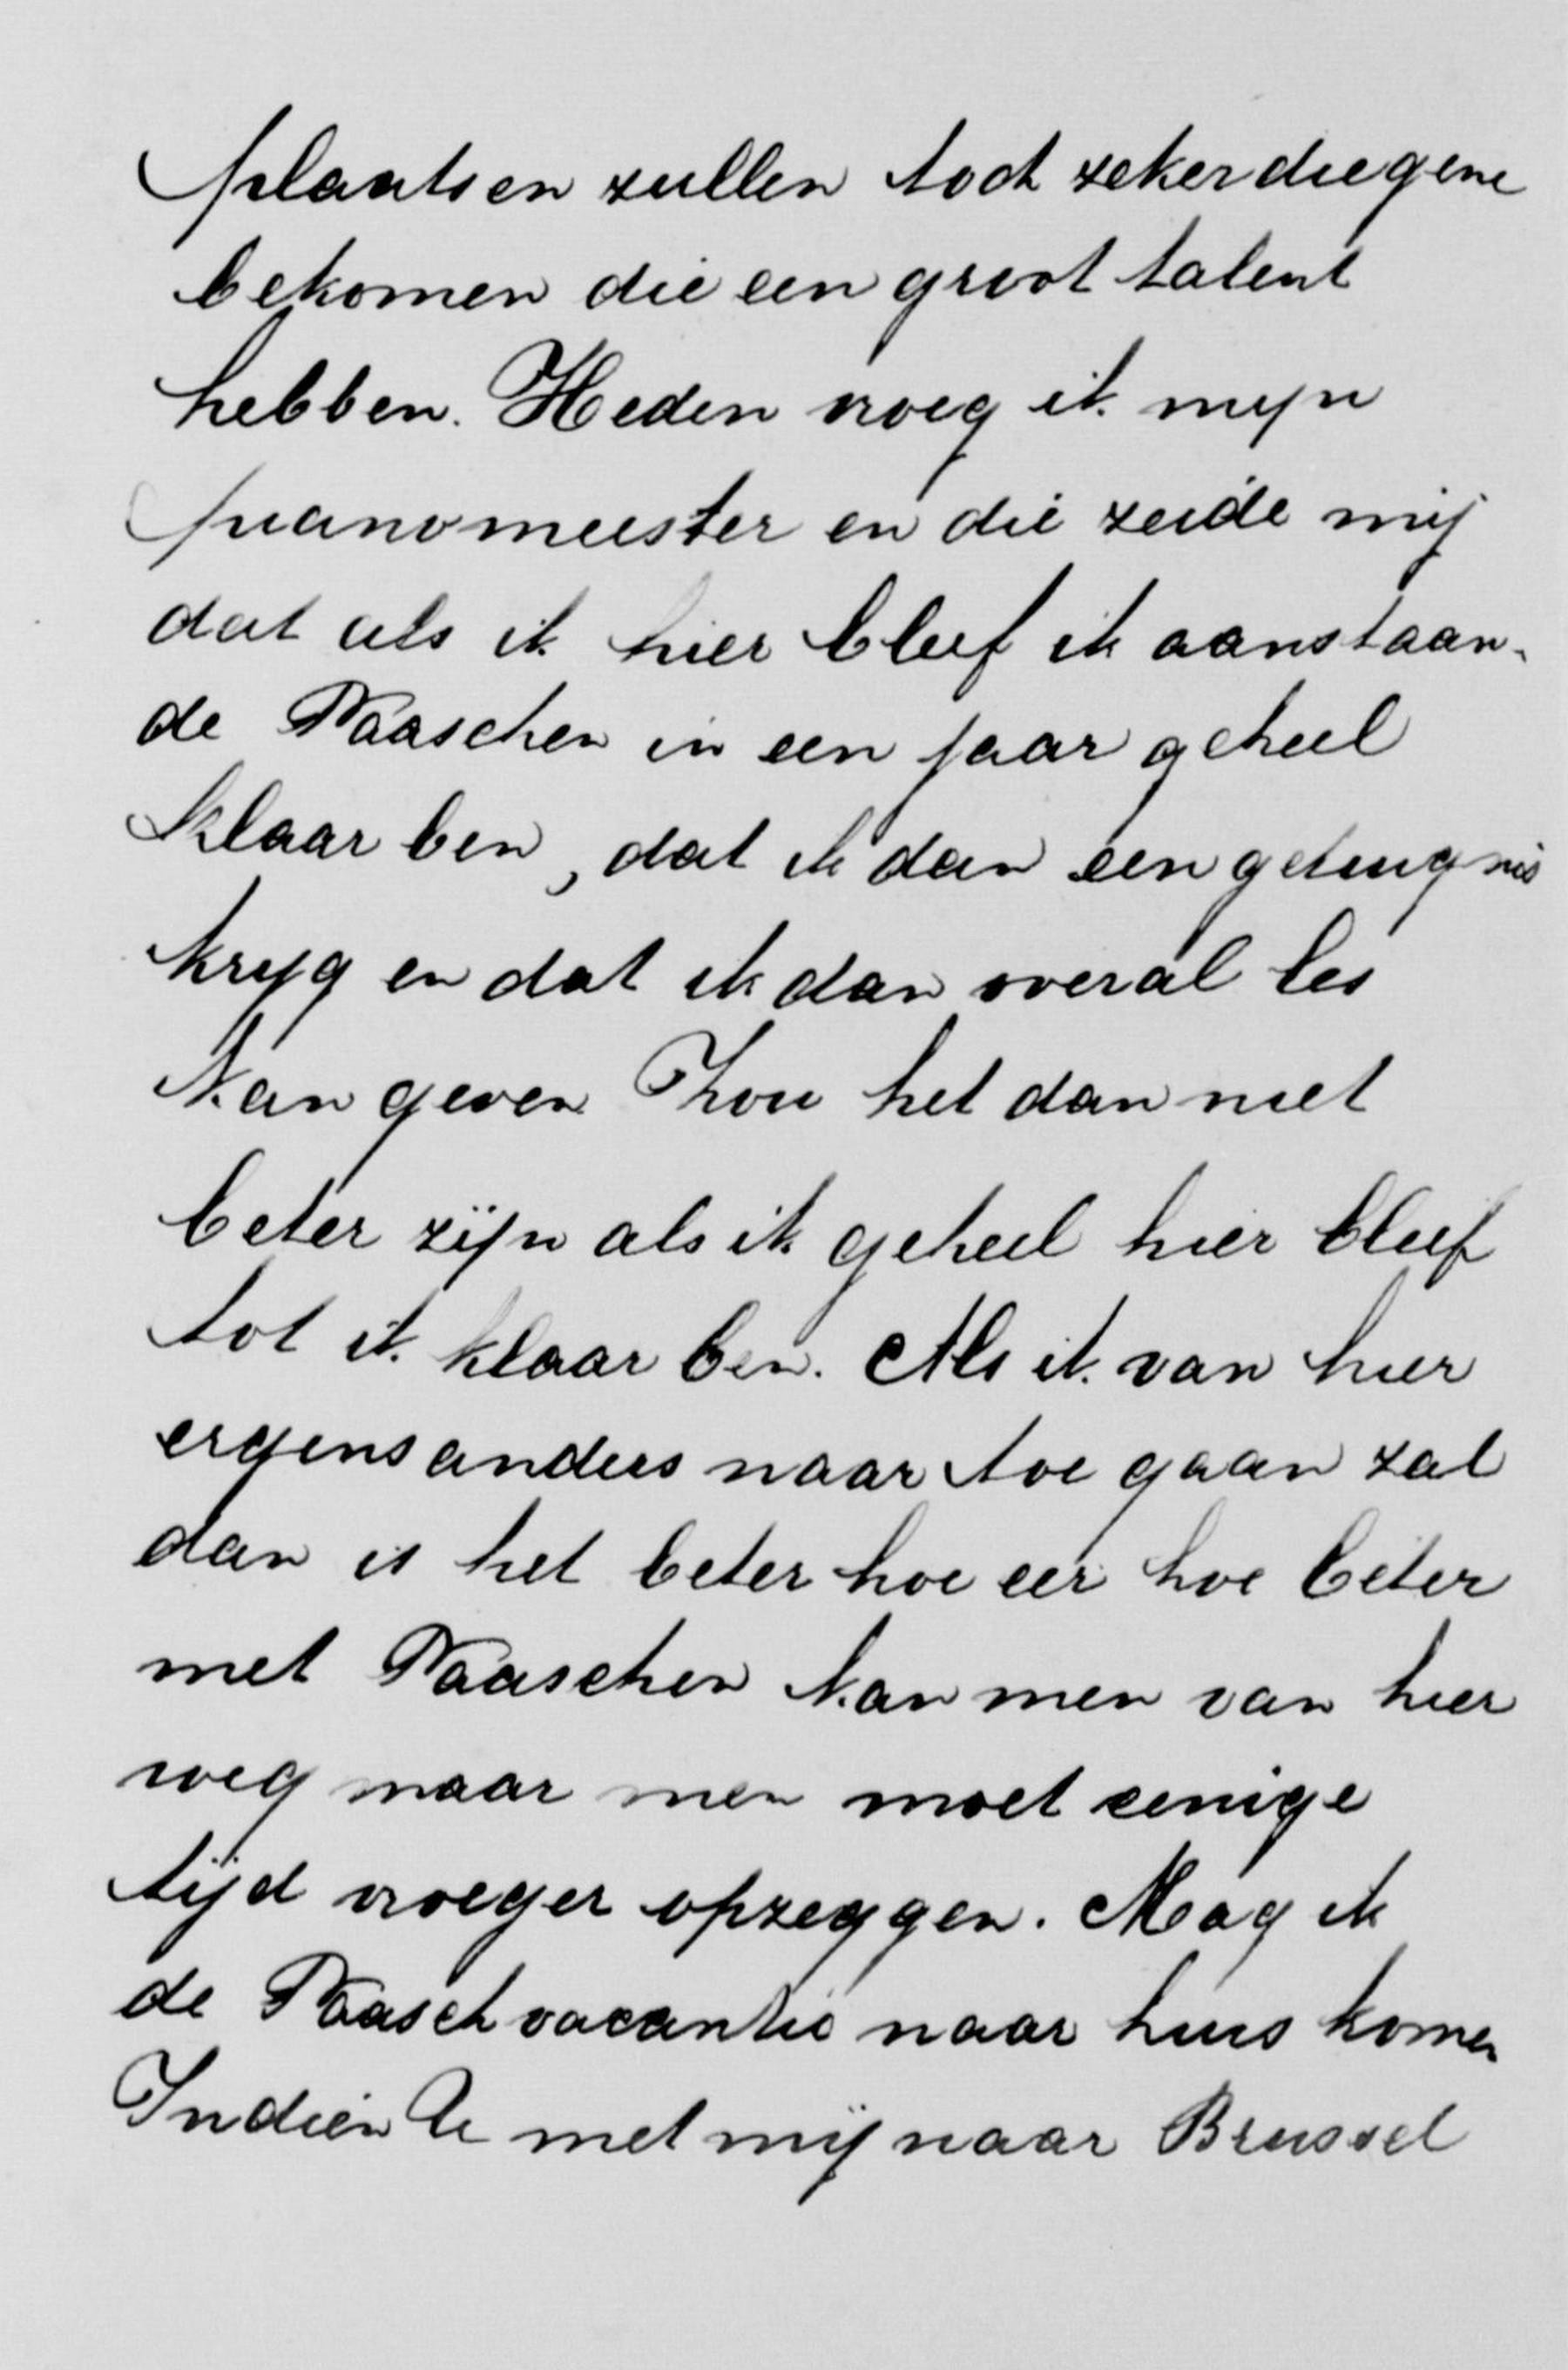 plaatsen zullen toch zeker diegene
bekomen die een groot talent
hebben. Heden vroeg ik mijn
pianomeester en die zeide mij
dat als ik hier bleef ik aanstaan-
de Paaschen in een jaar geheel
klaar ben, dat ik dan een getuugnis
krijg en dat ik dan overal les
kan geven Zou het dan niet
beter zijn als ik geheel hier bleef
tot ik klaar ben. Als ik van hier
ergens anders naar toe gaan zal
dan is het beter hoe eer hoe beter
met Paaschen kan men van hier
weg maar men moet eenige
tijd vroeger opzeggen. Mag ik
de Paaschvacantie naar huis komen
Indien U met mij naar Brussel